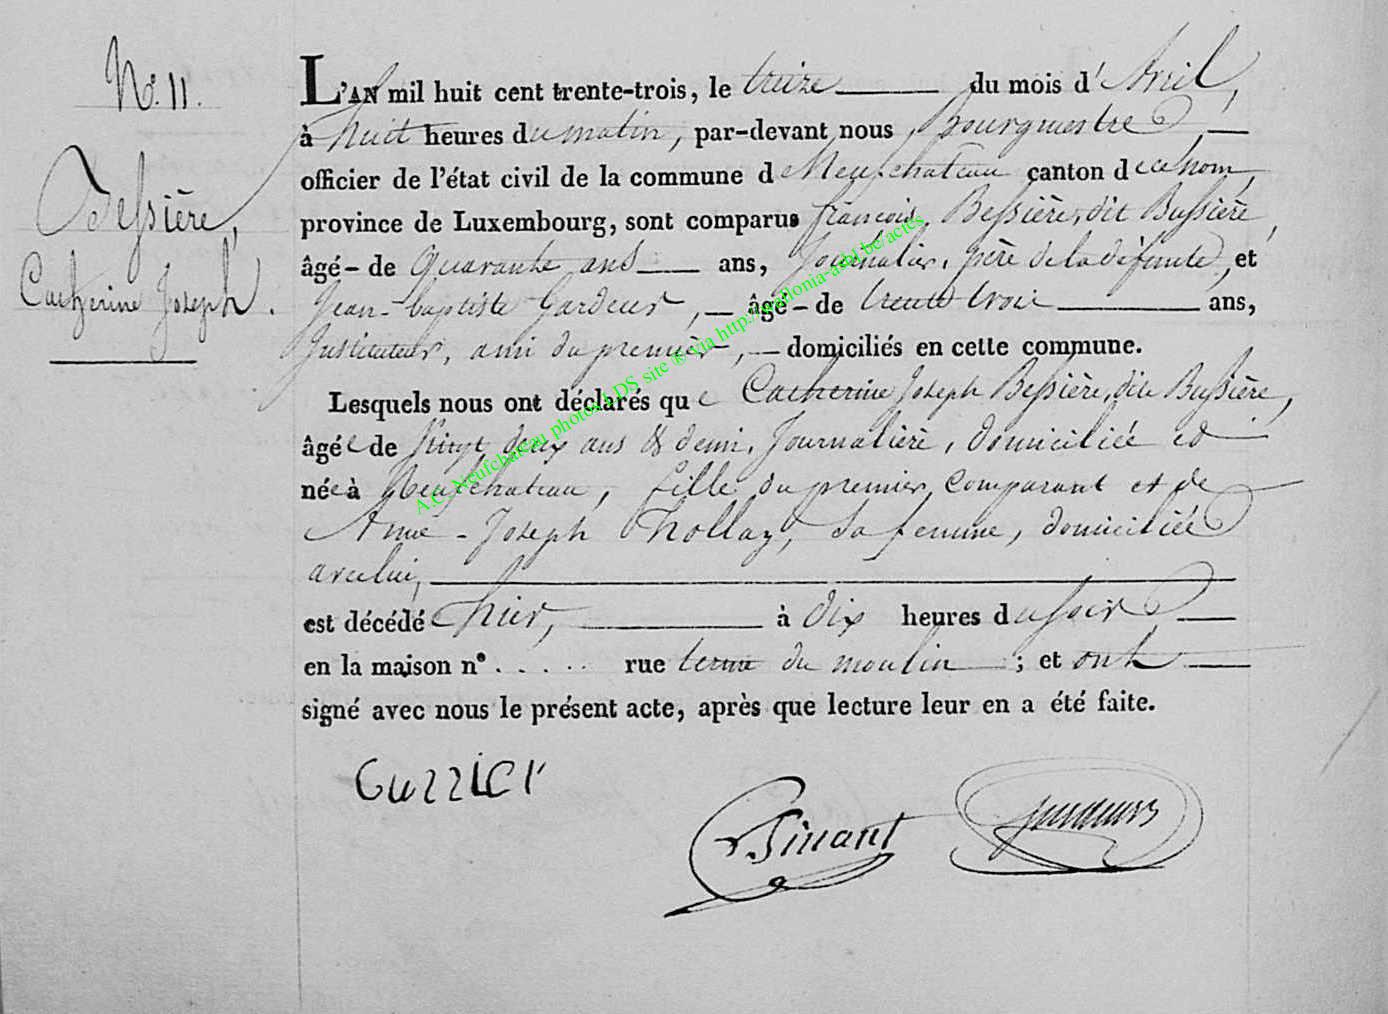 N.° 11.
Bessière,
Catherine Joseph.
L'AN mil huit cent trente-trois, le treize du mois d'Avril,
à huit heures du matin, par-devant nous, Bourgmestre,
officier de l'état civil de la commune de Neufchateau canton de ce nom,
province de Luxembourg, sont comparus françois Bessière, dit Bussière,
âgé - de Quarante ans ans, Journalier, père de la défunte, et
Jean-baptiste Gardeur, âgé - de trente trois ans,
Instituteur, ami du premier, domiciliés en cette commune.
Lesquels nous ont déclarés que Catherine Joseph Bessière, dite Bussière,
âgée de Vingt deux ans & demi, Journalière, domiciliée et
née à Neufchateau, fille du premier comparant et de
Anne-Joseph Hollay, sa femme, domiciliée
avec lui,
est décédée hier, à dix heures du soir,
en la maison n° . . . . . rue terme du moulin ; et ont
signé avec nous le présent acte, après que lecture leur en a été faite.
A.C. Neufchateau photos LDS site ® via http://wallonia-asbl.be/actes